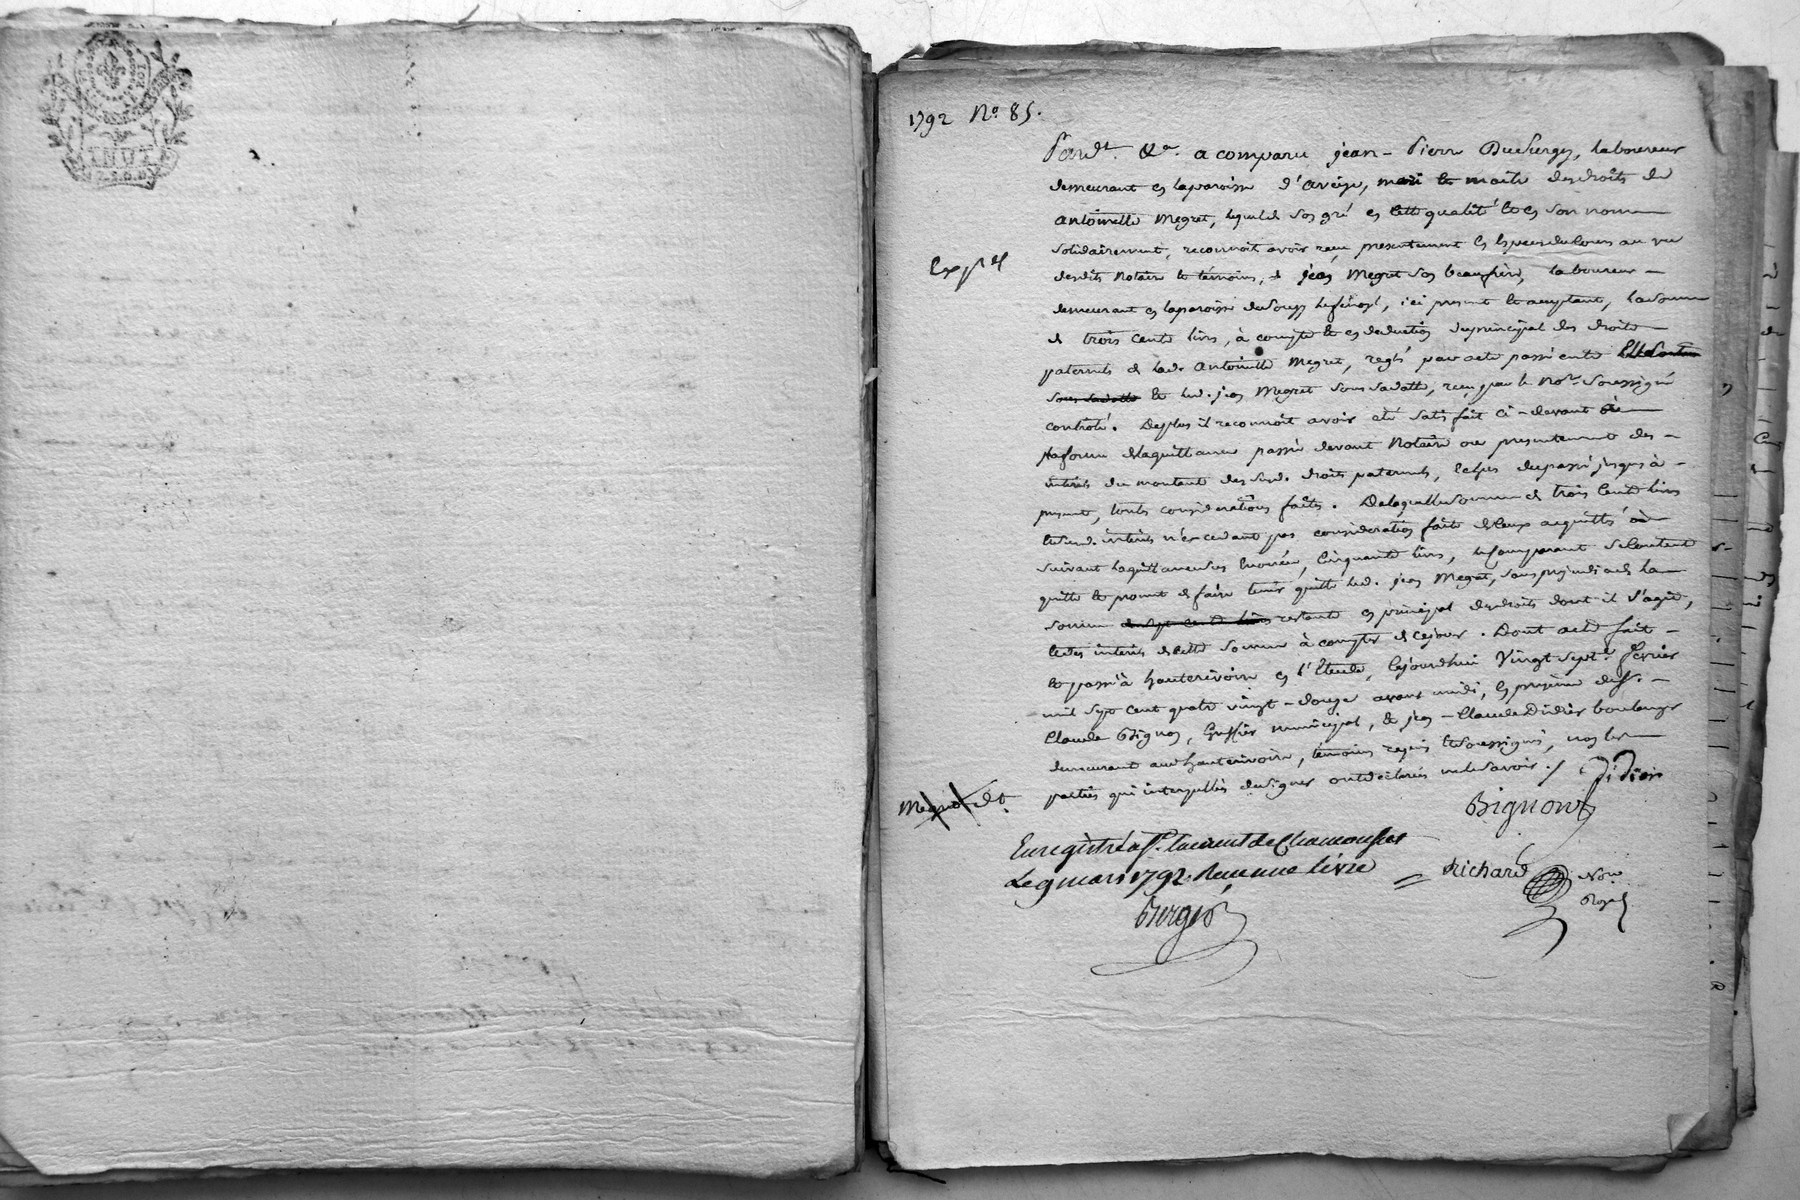 1792 No. 85.
Pardt. &a. a comparu jean-Pierre Duclurgez, laboureur
demeurant en la paroisse d'aveize, mari et maitre des droits de
antoinette Megret, lequel de son gré en cette qualité et en son nom
solidairement, reconnoit avoir reçu presentement en espèces du cours au vu
desdits Notaire et témoins, de jean Megret son beaufrère, laboureur
expée
demeurant en la paroisse de, ici present et acceptant, la somme
de trois cents livres, à compte et en deduction du principal des droits
paternels de lad. antoinette Megret, reglés par acte passé entre
sous sa date et led. jean Megret sous sa datte, reçu par le Nore. soussigné
controlé. Deplus il reconnoit avoir été satisfait ci-devant
la forme de la quittance passée devant Notaire ou presentement des
intérêts du montant desSusd. droits paternels, echus du passé jusques à
present, toutes considerations faites. De laquelle somme de trois cents livres
et susd. intérêts n'excedant pas consideration faite de ceux acquittés
suivant la quittance sus enoncée, cinquante livres, le comparant se contente
quitte et promet de faire tenir quitte led. jean Megret, sans prejudice de la
somme de sept cents livres restante en principal des droits dont il s'agit,
et des intérêts de cette somme à compter de ce jour. Dont acte fait
et passé à hauterivoire en l'Etude, cejourdhui Vingt sept. fevrier
mil sept cent quatre vingt-douze avant midi, en presence de Sr.
Claude Bignon, Greffier municipal, & jean-Claude Didier boulanger
demeurant aud. hauterivoire, témoins requis et soussignés, non les
parties qui interpellées de signer ont déclaré ne le savoir./. Didier
Megret dt.
Bignon
Enregistré à St. Laurent de Chamousset
Le 9 mars 1792. Reçu une livre
Richard Nore
Royal
Berger